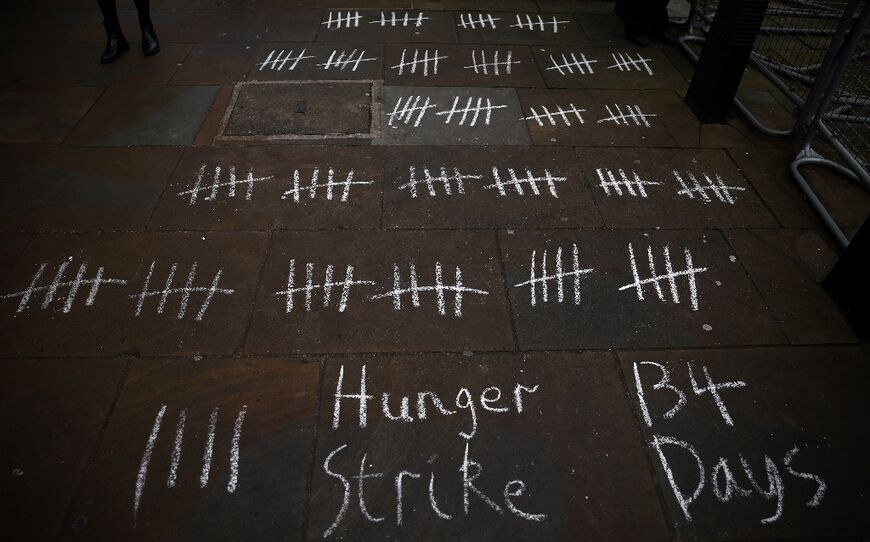 Hunger
Strike
134
Days